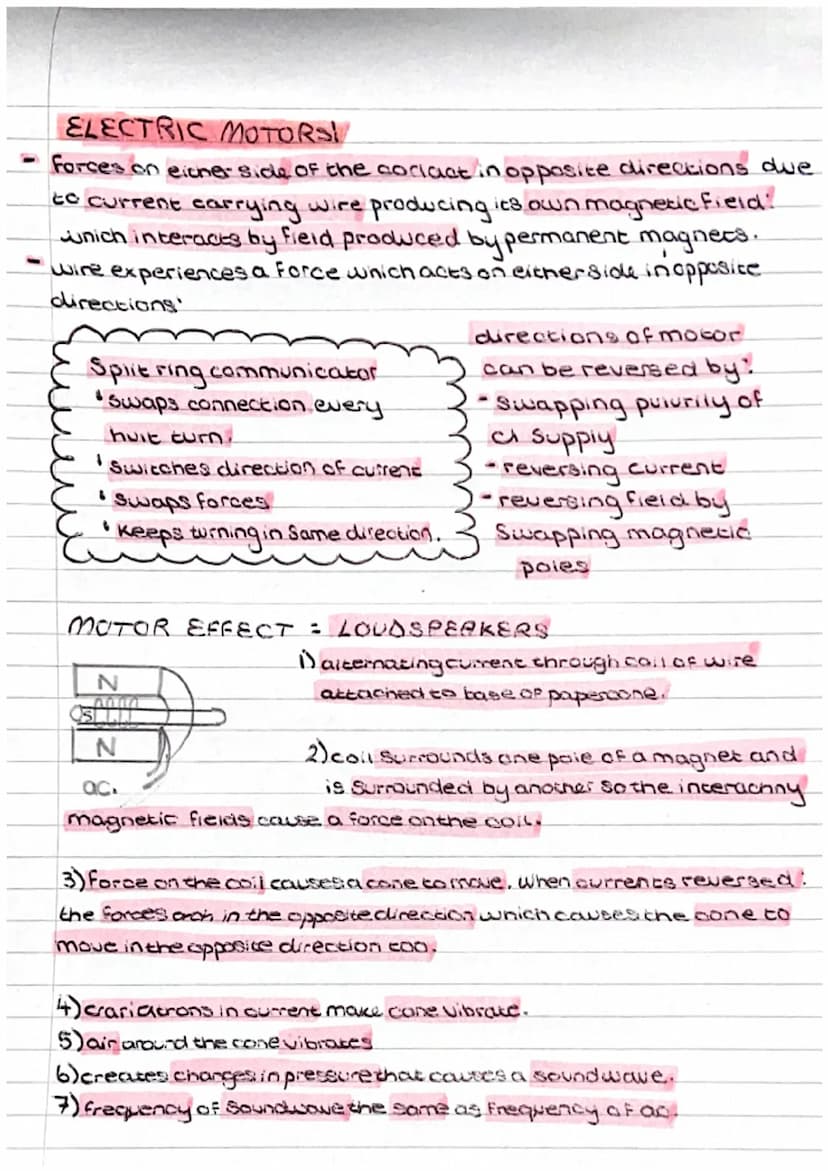 ELECTRIC MOTORS!
- Forces on either side of the in opposite directions due
to current carrying wire producing its own magnetic field:
which interacts by field produced by permanent magnets.
- wire experiences a force which acts on either side in opposite
directions.
Split ring communicator
• swaps connection every
turn.
• switches direction of current
• swaps forces
• Keeps turning in same direction.
directions of motor
can be reversed by:
- swapping of
supply
- reversing current
- reversing field by
swapping magnetic
poles
MOTOR EFFECT = LOUDSPEAKERS
N
S
N
ac.
1) alternating current through coil of wire
attached to base of papercone.
2) coil surrounds one pole of a magnet and
is surrounded by another so the
magnetic fields cause a force on the coil.
3) force on the coil causes a cone to move. When current's reversed:
the forces in the opposite direction which causes the cone to
move in the opposite direction too.
4) in current make cone vibrate.
5) air around the cone vibrates
6) creates changes in pressure that causes a soundwave.
7) frequency of soundwave the same as frequency of ac.